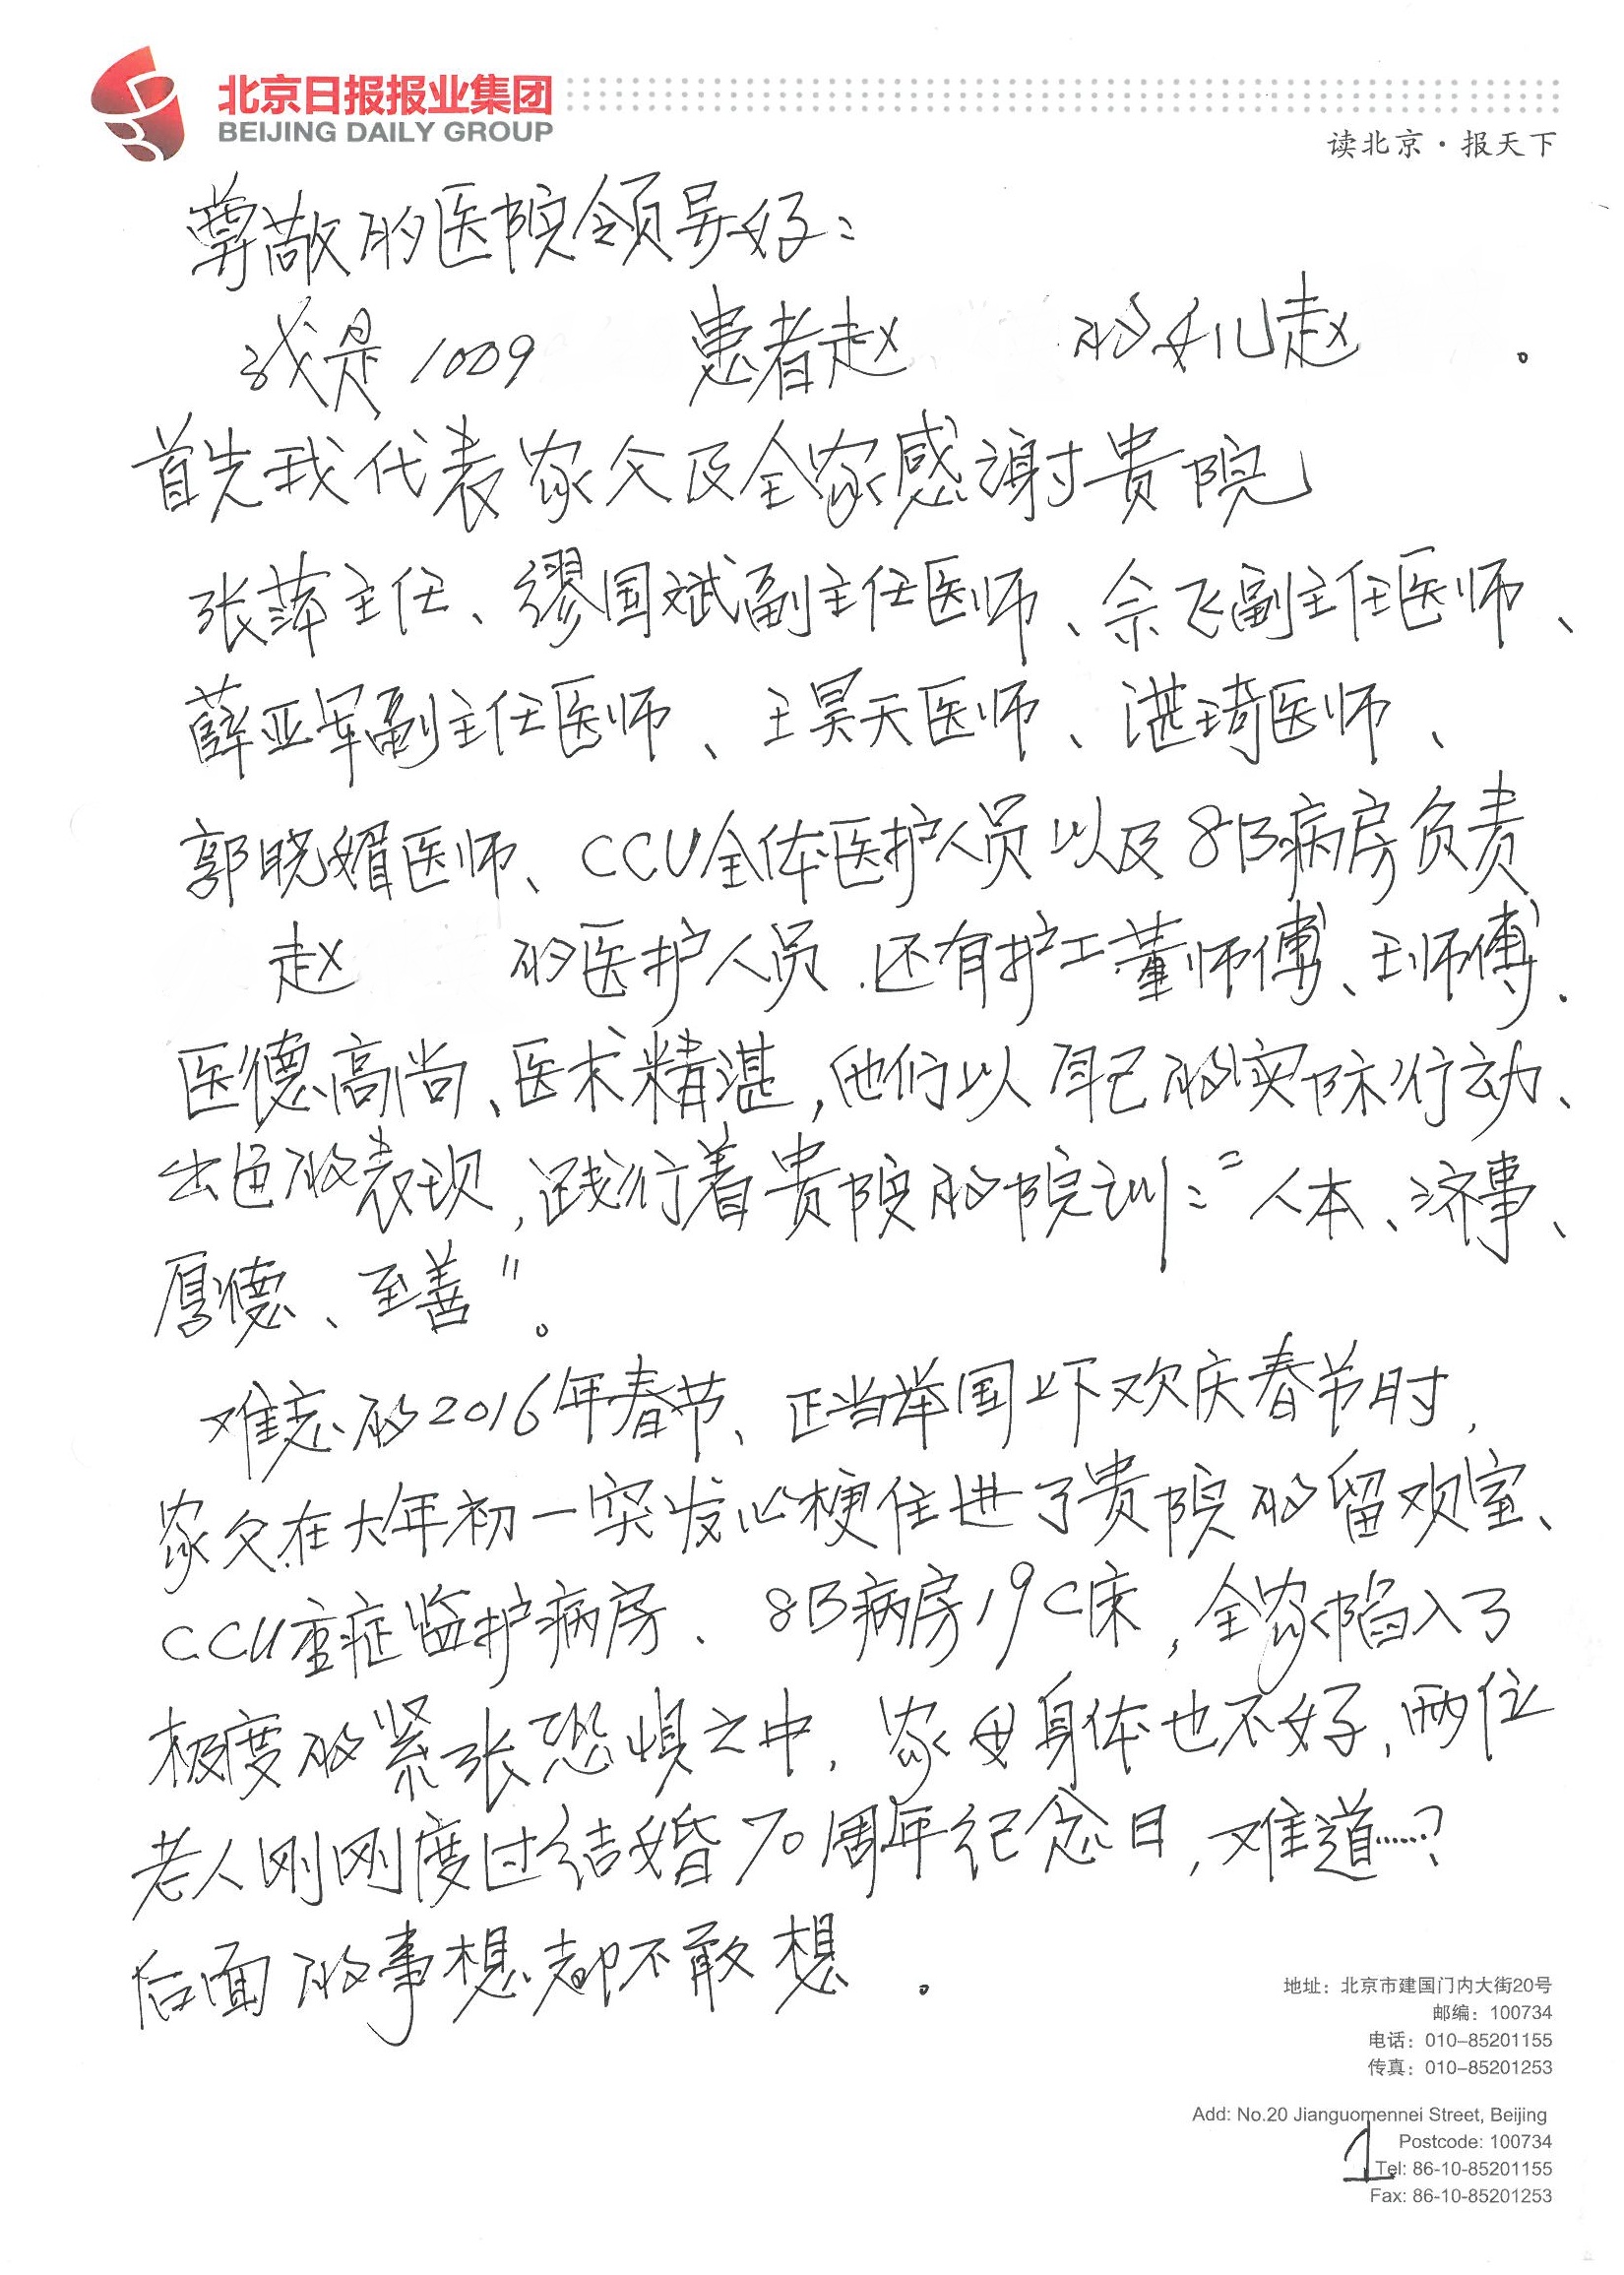 北京日报报业集团
BEIJING DAILY GROUP
读北京·报天下
尊敬的医院领导好：
我是1009 患者赵 的女儿赵 。
首先我代表家父及全家感谢贵院
张萍主任、缪国斌副主任医师、佘飞副主任医师、
薛亚军副主任医师、王昊天医师、湛琦医师、
郭晓媚医师、CCU全体医护人员以及8B病房负责
赵 的医护人员.还有护工董师傅、王师傅.
医德高尚、医术精湛,他们以自己的实际行动、
出色的表现,践行着贵院的院训:"人本、济事、
厚德、至善"。
难忘的2016年春节、正当举国上下欢庆春节时,
家父在大年初一突发心梗住进了贵院的留观室、
CCU重症监护病房、8B病房19C床,全家陷入了
极度的紧张恐惧之中,家母身体也不好,两位
老人刚刚度过结婚70周年纪念日,难道……?
后面的事想都不敢想。
地址：北京市建国门内大街20号
邮编：100734
电话：010-85201155
传真：010-85201253
Add: No.20 Jianguomennei Street, Beijing
Postcode: 100734
1
Tel: 86-10-85201155
Fax: 86-10-85201253